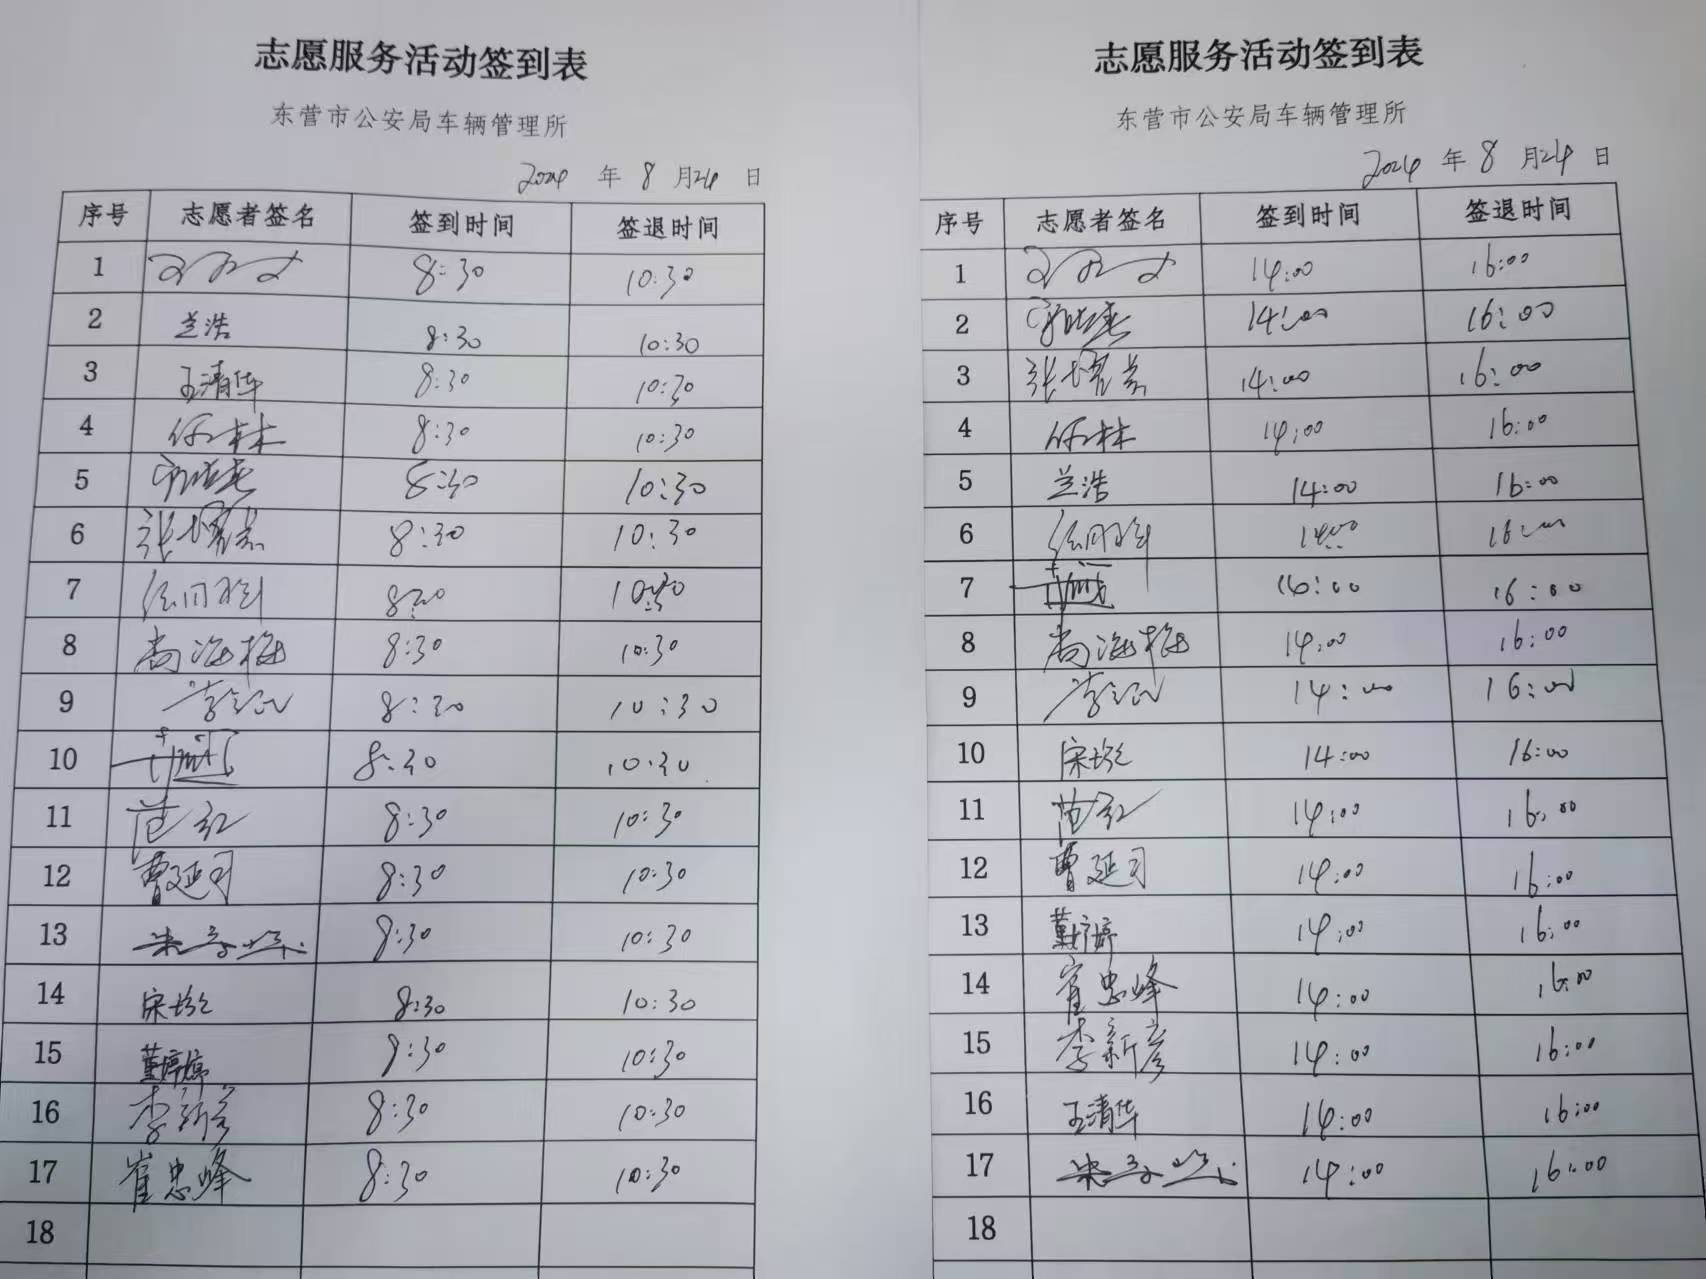 志愿服务活动签到表
东营市公安局车辆管理所
2024 年 8 月 24 日
序号 志愿者签名 签到时间 签退时间
1 8:30 10:30
2 兰浩 8:30 10:30
3 王清华 8:30 10:30
4 任林林 8:30 10:30
5 8:30 10:30
6 8:30 10:30
7 8:30 10:30
8 尚海梅 8:30 10:30
9 8:30 10:30
10 8:30 10:30
11 范红 8:30 10:30
12 曹延司 8:30 10:30
13 8:30 10:30
14 8:30 10:30
15 董婷婷 8:30 10:30
16 李新彦 8:30 10:30
17 崔忠峰 8:30 10:30
18
志愿服务活动签到表
东营市公安局车辆管理所
2024 年 8 月 24 日
序号 志愿者签名 签到时间 签退时间
1 14:00 16:00
2 14:00 16:00
3 14:00 16:00
4 14:00 16:00
5 兰浩 14:00 16:00
6 14:00 16:00
7 16:00
8 尚海梅 14:00 16:00
9 14:00 16:00
10 14:00 16:00
11 范红 14:00 16:00
12 曹延司 14:00 16:00
13 董婷婷 14:00 16:00
14 崔忠峰 14:00 16:00
15 李新彦 14:00 16:00
16 王清华 14:00 16:00
17 14:00 16:00
18